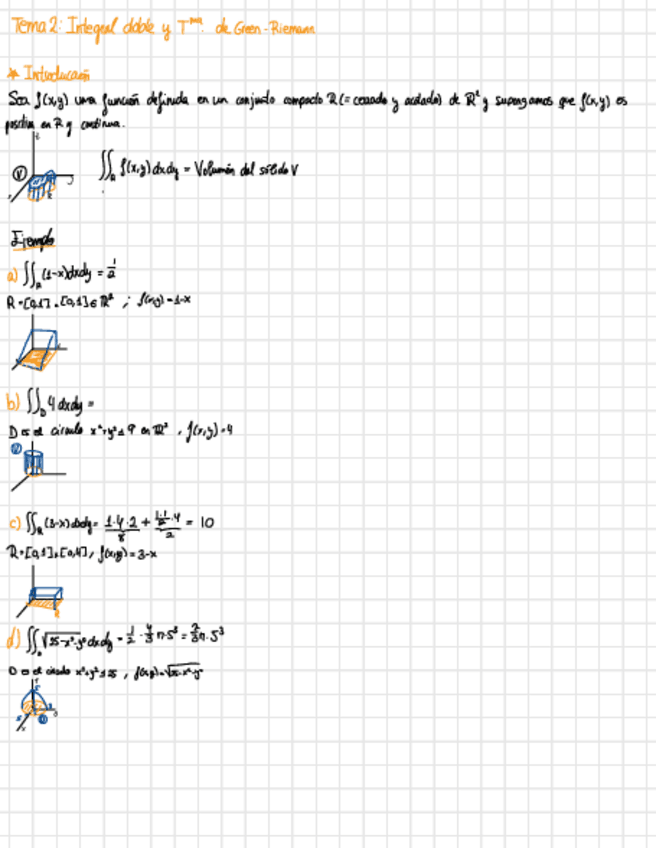 Tema 2: Integral doble y Tma. de Green-Riemann
* Introducción
Sea f(x,y) una función definida en un conjunto compacto R (= cerrado y acotado) de R² y supongamos que f(x,y) es
positiva en R y continua.
∬_R f(x,y) dxdy = Volumen del sólido V
Ejemplo
a) ∬_R (1-x)dxdy = 1/2
R=[0,1]×[0,1]∈R² ; f(x,y)=1-x
b) ∬_D 4 dxdy =
D es el círculo x²+y²≤9 en R², f(x,y)=4
c) ∬_R (3-x)dxdy = 1·4·2 + 1·1/2·4 = 10
8 2
R=[0,1]×[0,4], f(x,y)=3-x
d) ∬_D √25-x²-y² dxdy = 1/2 · 4/3 π·5³ = 2/3 π·5³
D es el círculo x²+y²≤25, f(x,y)=√25-x²-y²